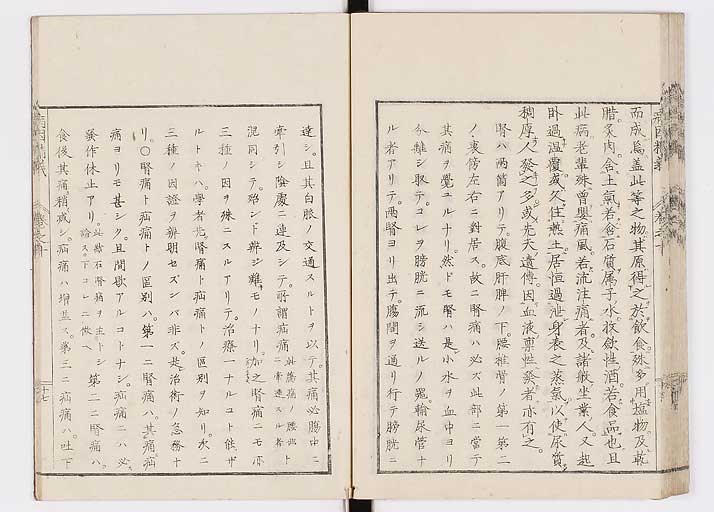 而成焉蓋此等之物其原得之於飲食殊多用塩物及乾
腊炙肉含土氣若含石質属子水收斂性酒若食品也且
此病老輩殊曾嬰痛風若流注痛者及諸般坐業人又起
臥過温覆或久住燕土居恒過泄身表之蒸氣以使尿質
稠厚人發之多或先天遺傳因血液稟性發者亦有之
腎ハ両箇アリテ腹底肝脾ノ下腰椎骨ノ第一第二
ノ裏傍左右ニ對居ス故ニ腎痛ハ必ズ此部ニ當テ
其痛ヲ覺ユルナリ然ドモ腎ハ是小水ヲ血中ヨリ
分離シ取テコレヲ膀胱ニ流シ送ルノ器輸尿管ナ
ル者アリテ両腎ヨリ出テ腸間ヲ通リ行テ膀胱ニ
達シ且其白脈ノ交通スルトヲ以テ其痛必腸中ニ
牽引シ陰處ニ連及シテ所謂疝痛
混同シテ殆ンド辨ジ難キモノナリ加之腎痛ニモ亦
三種ノ因ヲ殊ニスルアリテ治療一ナルコト能ザ
ルトキハ學者先腎痛ト疝痛トノ區別ヲ知リ次ニ
三種ノ因證ヲ辨明セズンバ非ズ是治術ノ急務ナ
リ○腎痛ト疝痛トノ區別ハ第一ニ腎痛ハ其痛疝
痛ヨリモ甚シク且間歇アルコトナシ疝痛ニハ必
發作休止アリ此歇石腎痛ヲ主トシ論ス下コレニ倣ヘ第二ニ腎痛ハ
食後其痛稍減シ疝痛ハ増益ス第三ニ疝痛ハ吐下
十七